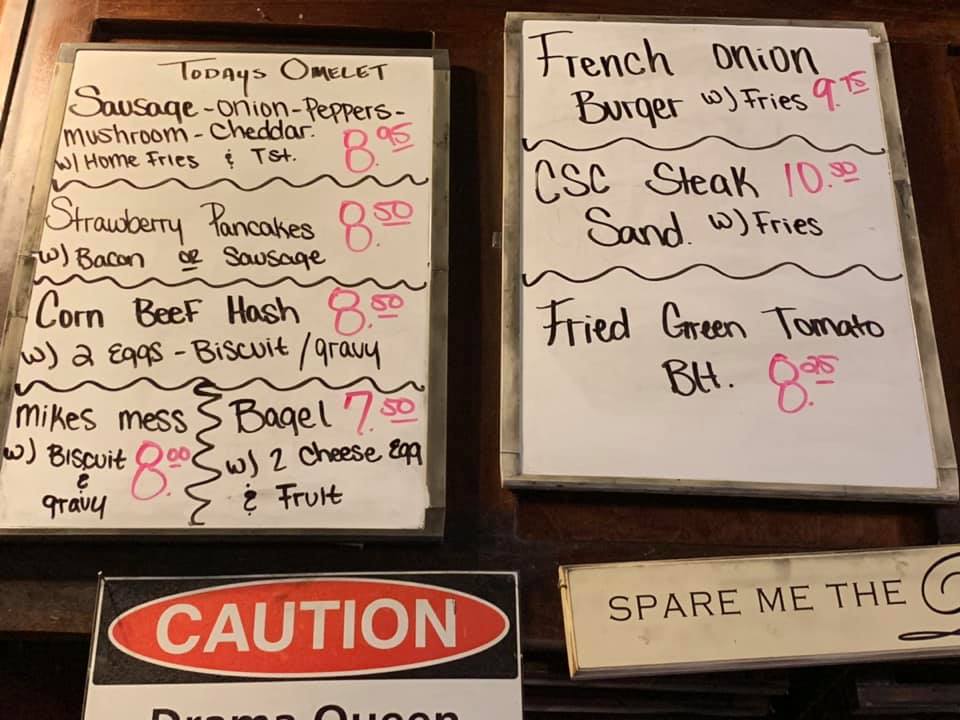 TODAYS OMELET
Sausage - onion - Peppers -
mushroom - Cheddar. 8.95
w/ Home Fries & Tst.
Strawberry Pancakes 8.50
w) Bacon or Sausage
Corn Beef Hash 8.50
w) 2 Eggs - Biscuit / gravy
mikes mess
w) Biscuit 8.00
&
gravy
Bagel 7.50
w) 2 Cheese Egg
& Fruit
French onion
Burger w) Fries 9.75
CSC Steak 10.50
Sand. w) Fries
Fried Green Tomato
Blt. 8.25
CAUTION
Drama Queen
SPARE ME THE